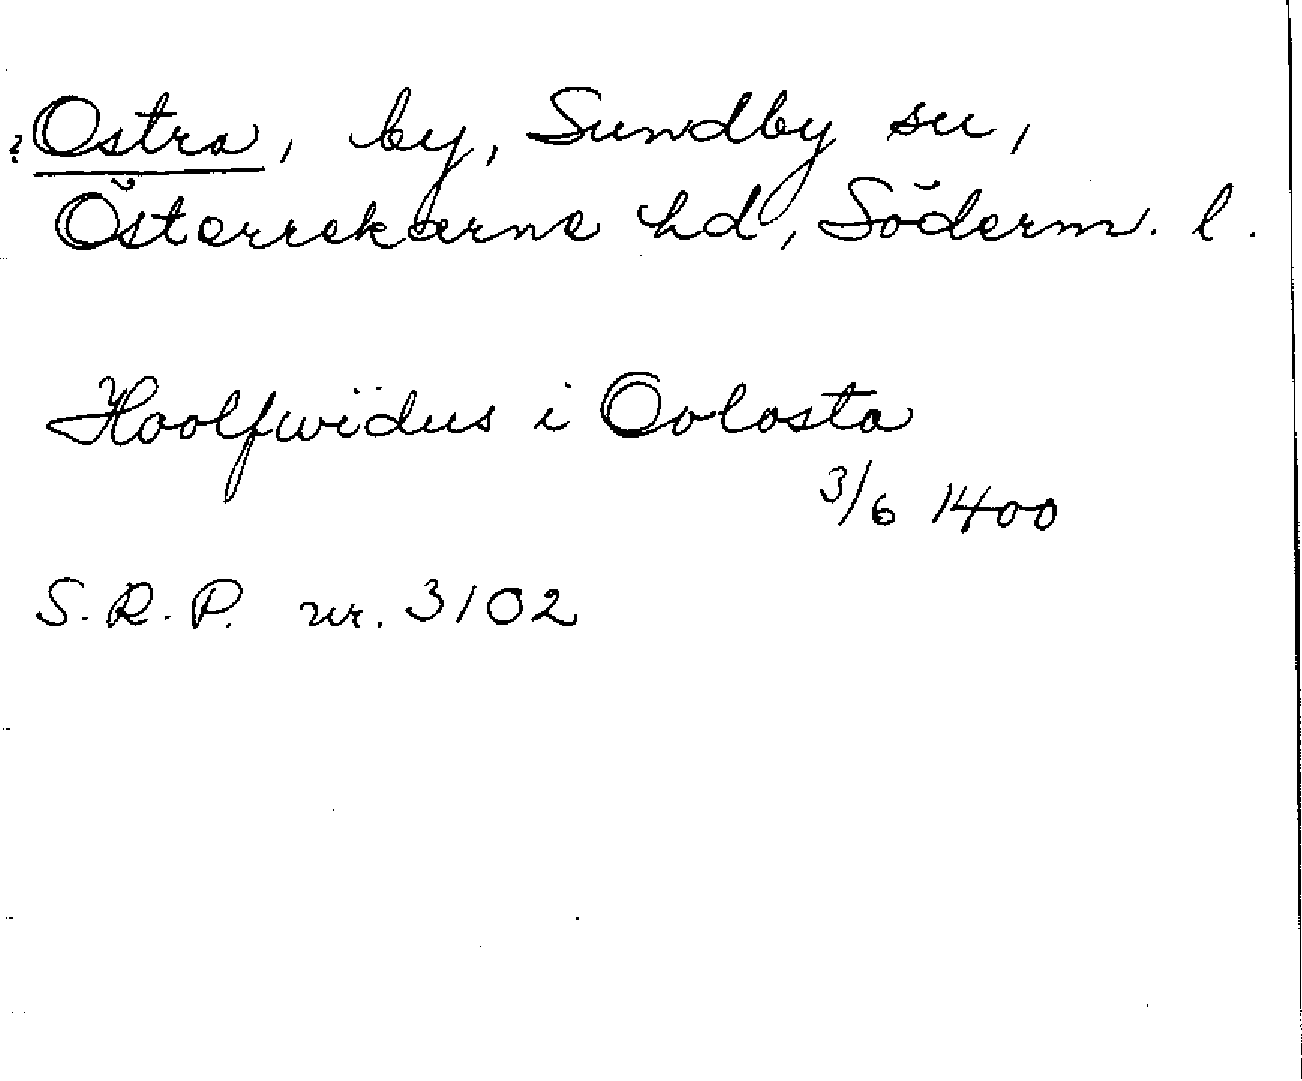 ? Ostra, by, Sundby sn,
Österrekarne hd, Söderm. l.
Hoolfwidus i Oolosta
3/6 1400
S.R.P. nr. 3102